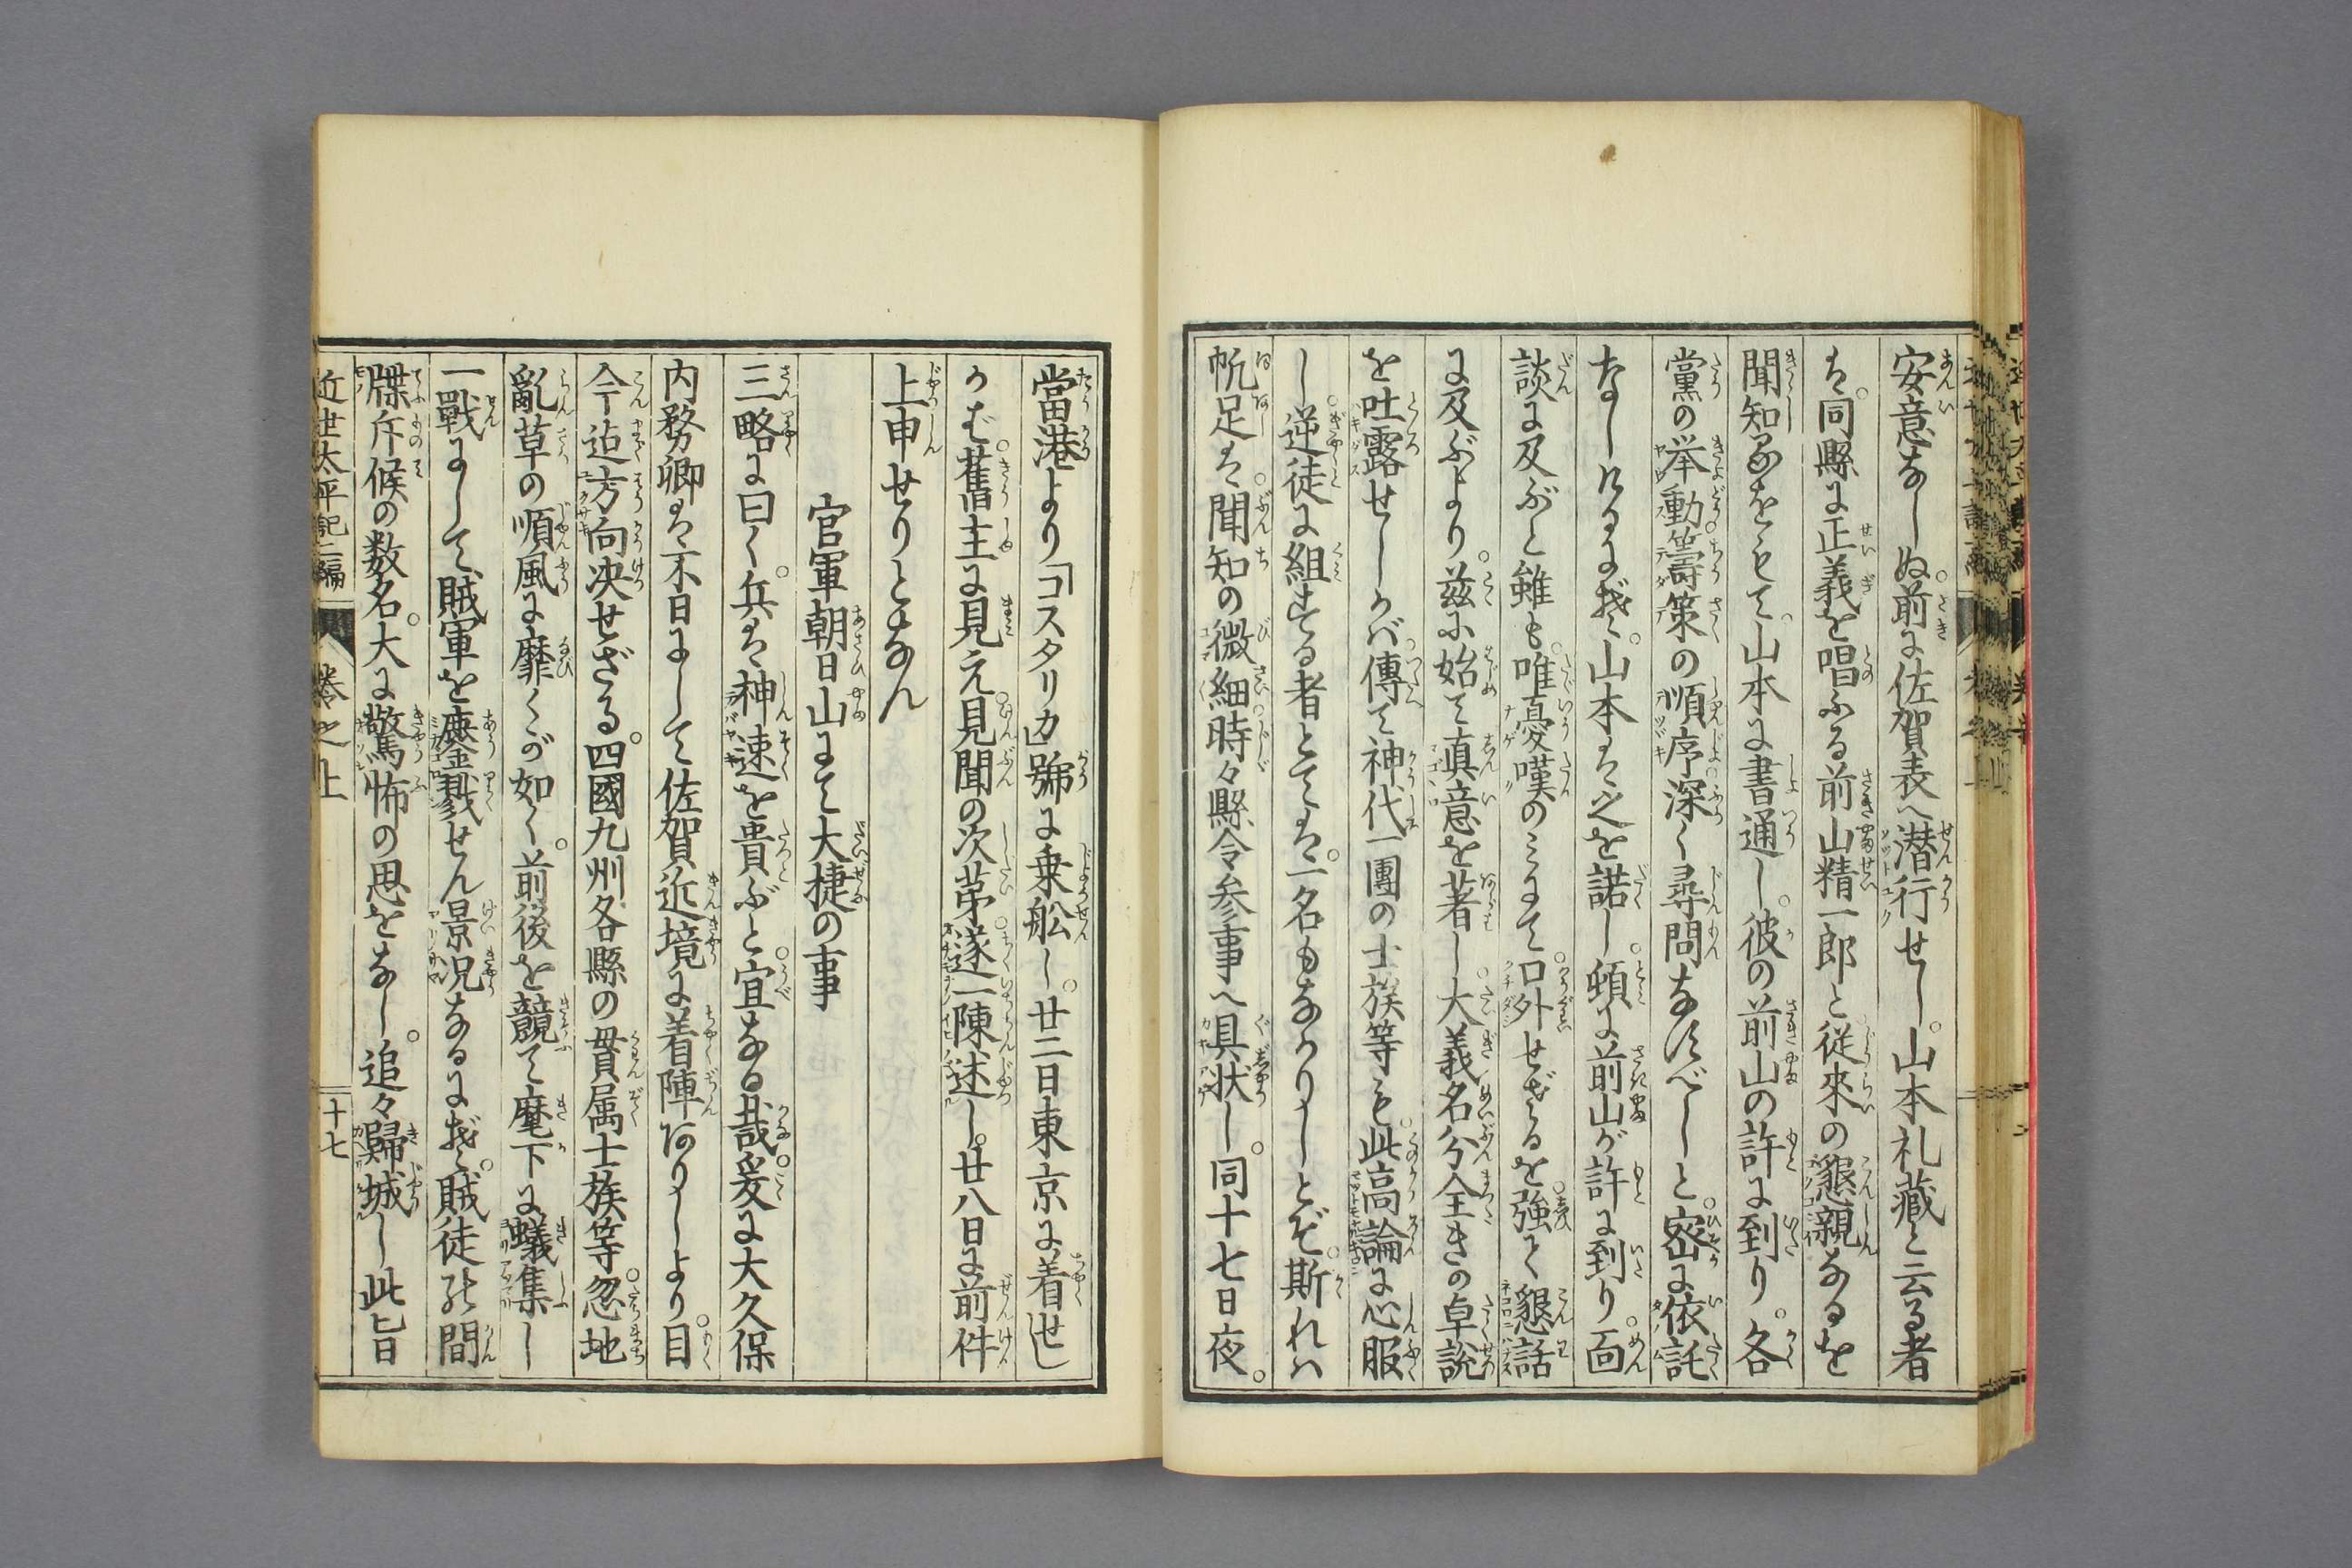 安意なしぬ前に佐賀表へ潜行せし山本礼藏と云る者
は同縣に正義を唱ふる前山精一郎と従來の懇親なるを
聞知るをもて山本に書通し彼の前山の許に到り各
黨の挙動籌策の順序深く尋問なすべしと密に依託
なしけるにぞ山本は之を諾し頓に前山が許に到り面
談に及ぶと雖も唯憂嘆のみにて口外せざるを強て懇話
に及ぶより茲に始て真意を著し大義名分全きの卓説
を吐露せしかバ傳て神代一團の士族等も此高論に心服
し逆徒に組する者とては一名もなかりしとぞ斯れハ
帆足は聞知の微細時々縣令参事へ具状し同十七日夜
當港より「コスタリカ」號に乗舩し廿二日東京に着せし
かば舊主に見え見聞の次第逐一陳述し廿八日に前件
上申せりとなん
官軍朝日山にて大捷の事
三略に曰く兵は神速を貴ぶと宜なる哉爰に大久保
内務卿は不日にして佐賀近境に着陣ありしより目
今迄方向决せざる四國九州各縣の貫属士族等忽地
亂草の順風に靡くが如く前後を競て麾下に蟻集し
一戰にして賊軍を鏖戮せん景况なるにぞ賊徒の間
牒斥候の数名大に驚怖の思をなし追々歸城し此旨
近世太平記二編 巻之上 十七